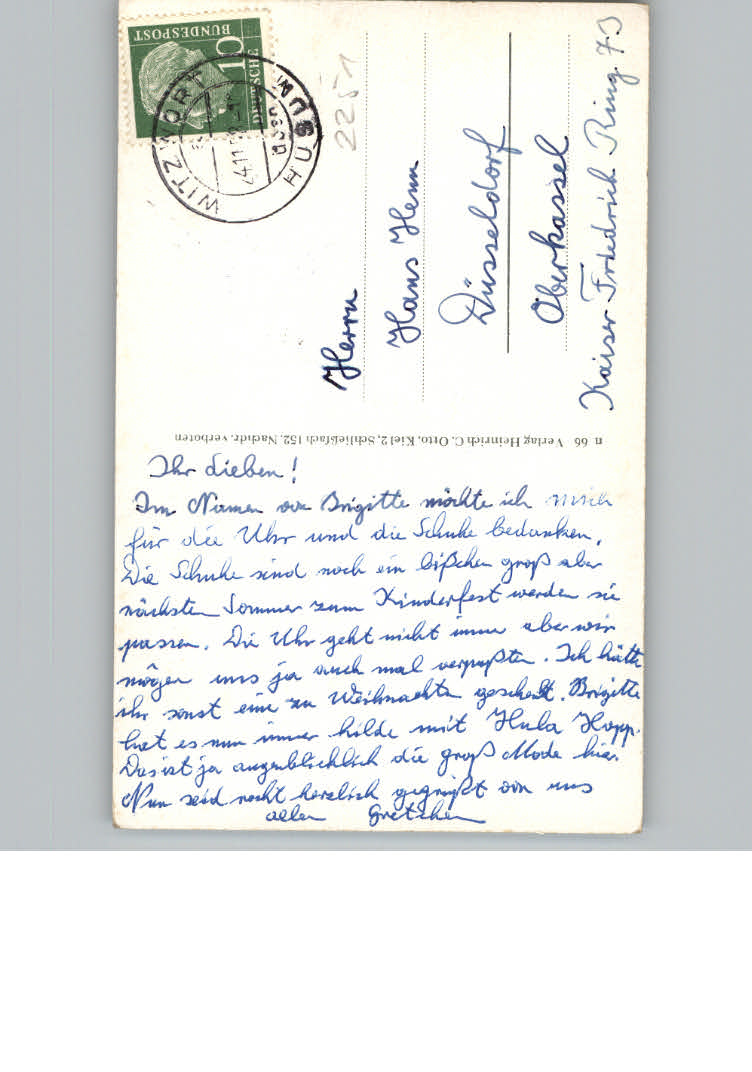 DEUTSCHE
BUNDESPOST
10
WITZWORT
HUSUM
24.11.58
2251
Herrn
Hans Henn
Düsseldorf
Oberkassel
Kaiser Friedrich Ring 73
n 66 Verlag Heinrich C. Otto, Kiel 2, Schließfach 152. Nachdr. verboten
Ihr Lieben!
Im Namen von Brigitte möchte ich mich
für die Uhr und die Schuhe bedanken.
Die Schuhe sind noch ein bißchen groß aber
nächsten Sommer zum Kinderfest werden sie
passen. Die Uhr geht nicht immer aber wir
mögen uns ja auch mal verpußten. Ich hätte
ihr sonst eine zu Weihnachten geschenkt. Brigitte
hat es nun immer hilde mit Hula Hopp.
Das ist ja augenblicklich die groß Mode hier.
Nun seid recht herzlich gegrüßt von uns
allen Gretchen